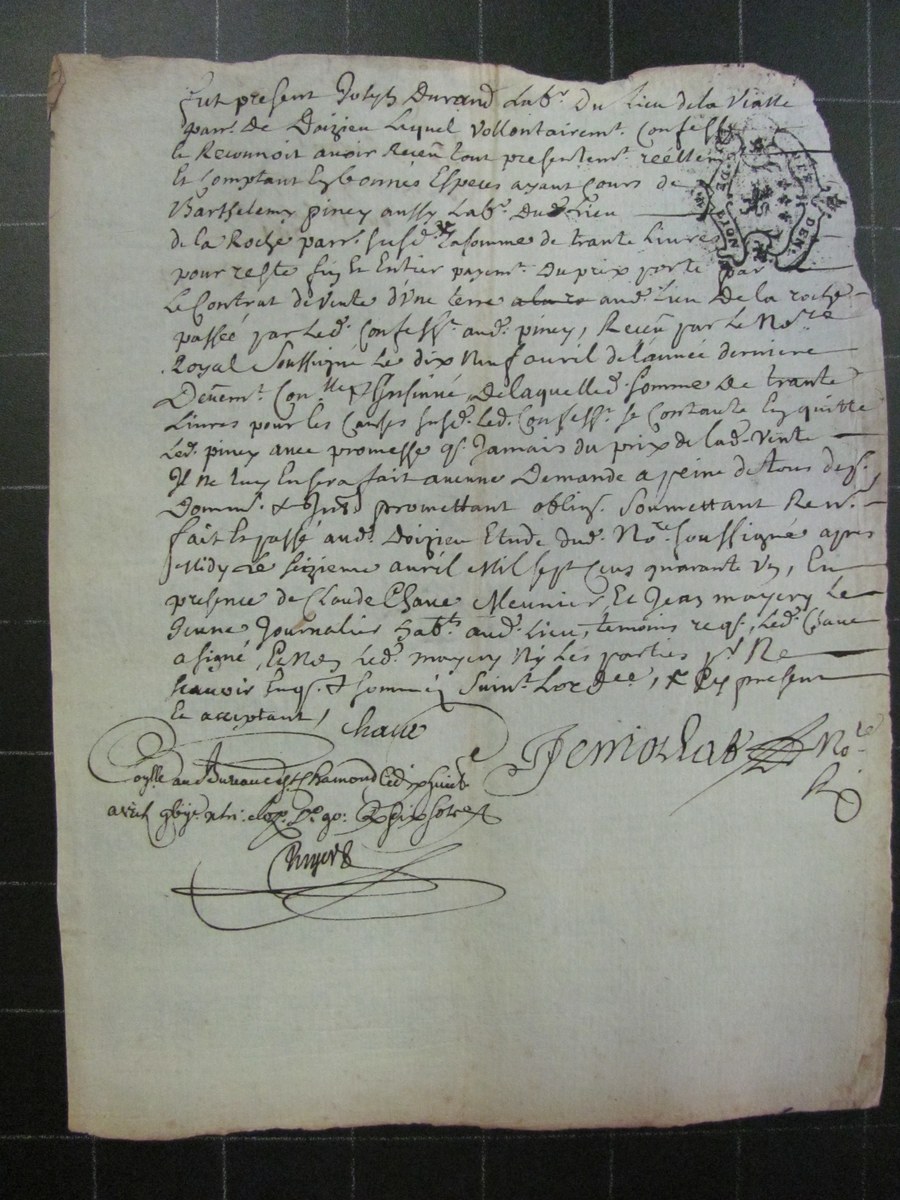 fut present Joseph Durand Labr. Du Lieu de la Vialle
parr. de Doizieu Lequel Vollontairemt. Confesse
Et Reconnoit avoir Receu tout presentemt. réellemt
Et Comptant En bonnes Especes ayant Cours de
Barthelemy piney aussy Labr. Dud. Lieu
de la Roche parr. susd. La somme de trante Livres
pour reste fin Et Entier payemt. Du prix porté par
Le Contrat de Vente d'Une terre aud. Lieu De la roche
passée par Led. Confessr. aud. piney, Receu par Le Nore
Royal Soussigné Le dix Neuf avril de l'année derniere
Deuemt. Conllé & Insinué, De laquelle d. somme De trante
Livres pour les Causes susd. Led. Confessr. se Contante En quitte
Led. piney avec promesse qe. Jamais du prix de lad. Vente
Il ne luy En sera fait aucune Demande a peine de tous des.
Domm. & Int. promettant oblig. Soumettant Ren.
fait Et passé aud. Doizieu Etude dud. Nore. soussigné apres
Midy Le seizieme avril Mil sept Cens quarante Un, En
presence de Claude Chave Meunier, Et Jean mayery Le
Jeune Journalier habts. aud. Lieu, temoins reqs. Led. Chave
a signé, Et Non Led. mayery Ny Les parties pr. Ne
scavoir Enqs. & sommés Suivt. Lordce.,
Et acceptant,
Chave
Nore
au Bureau de St Chamond Le dix huit
avril